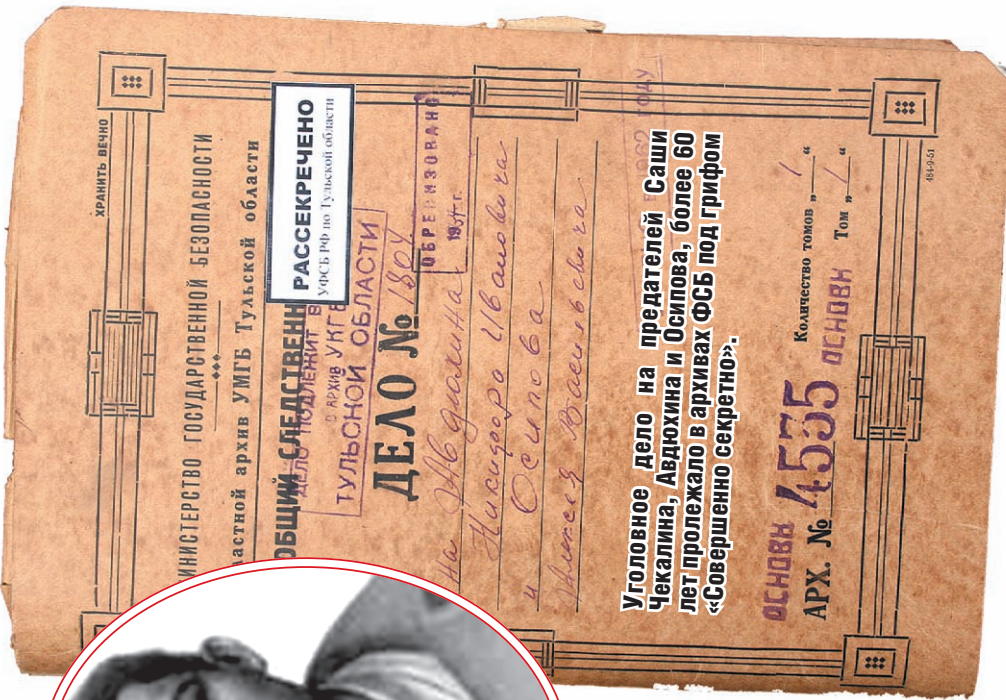 ХРАНИТЬ ВЕЧНО
ИНИСТЕРСТВО ГОСУДАРСТВЕННОЙ БЕЗОПАСНОСТИ
ластной архив УМГБ Тульской области
ОБЩИЙ СЛЕДСТВЕНН
РАССЕКРЕЧЕНО
УФСБ РФ по Тульской области
ДЕЛО ПОДЛЕЖИТ В
В АРХИВ УКГБ
ТУЛЬСКОЙ ОБЛАСТИ
ДЕЛО № 1804
1954 г.
на Авдюхина
Никифора Ивановича
и Осипова
Алексея Васильевича
1962 ГОДУ
Уголовное дело на предателей Саши
Чекалина, Авдюхина и Осипова, более 60
лет пролежало в архивах ФСБ под грифом
«Совершенно секретно».
ОСНОВН
ОСНОВН
Количество томов „ 1 “
АРХ. № 4535 Том „ 1 “
484-9-51